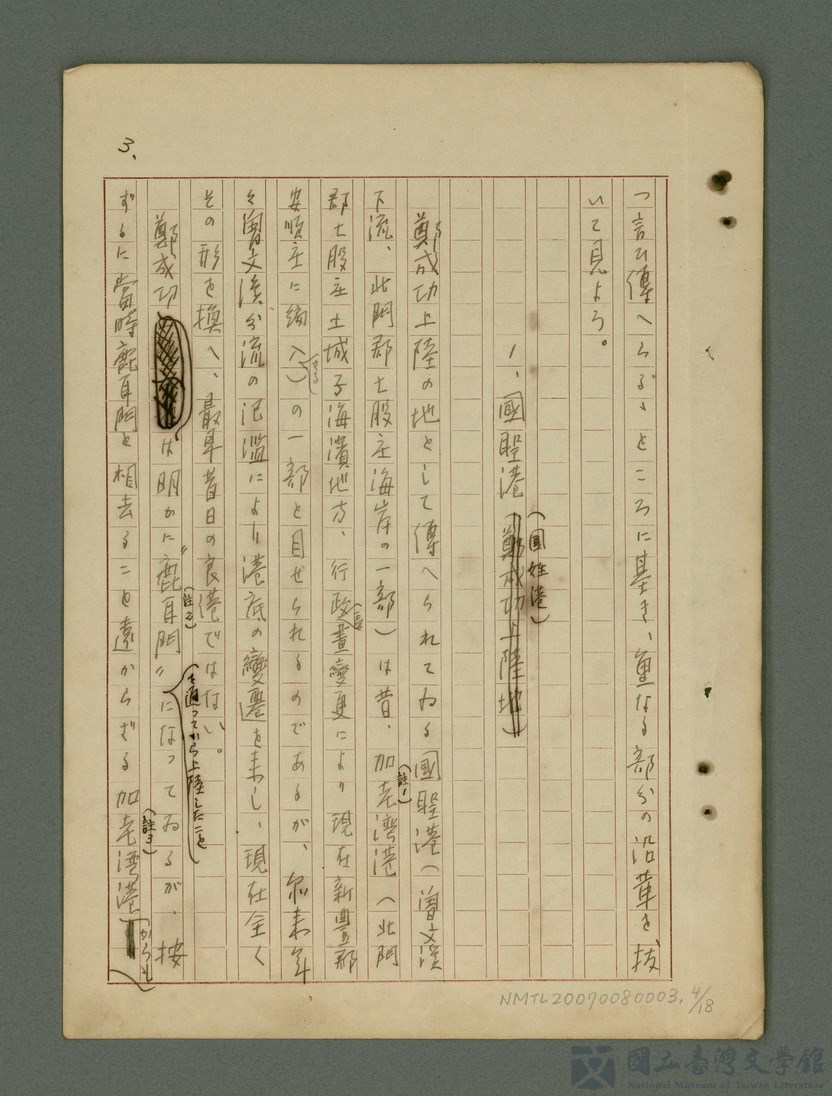 3.
つ言ひ傳へらるゝところに基き、重なる部分の沿革を拔
いて見よう。
1、國聖港（鄭成功上陸地）
（國姓港）
鄭成功上陸の地として傳へられてゐる國聖港（曽文溪
下流、北門郡七股庄海岸の一部）は昔、加老湾港（北門
（註1）
郡七股庄土城子海濱地方、行政區畫變更により現在新豊郡
安順庄に編入さる）の一部と目せられるのであるが、爾来年
々曽文溪分流の氾濫により港底の變遷を来し、現在全く
その形を換へ、最早昔日の良港ではない。
（註2）
鄭成功は明かに〝鹿耳門〟になってゐるが、按
を通ってから上陸したこと
ずるに當時鹿耳門と相去ること遠からざる加老湾港からも
（註3）
NMTL20070080003, 4/18
國立臺灣文學館
National Museum of Taiwan Literature